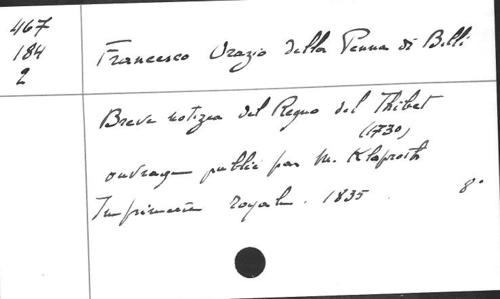 467
184
2
Francesco Orazio della Penna di Billi
Breve notizia del Regno del Thibet
(1730)
ouvrage publié par M. Klaproth
Imprimerie royale. 1835. 8°